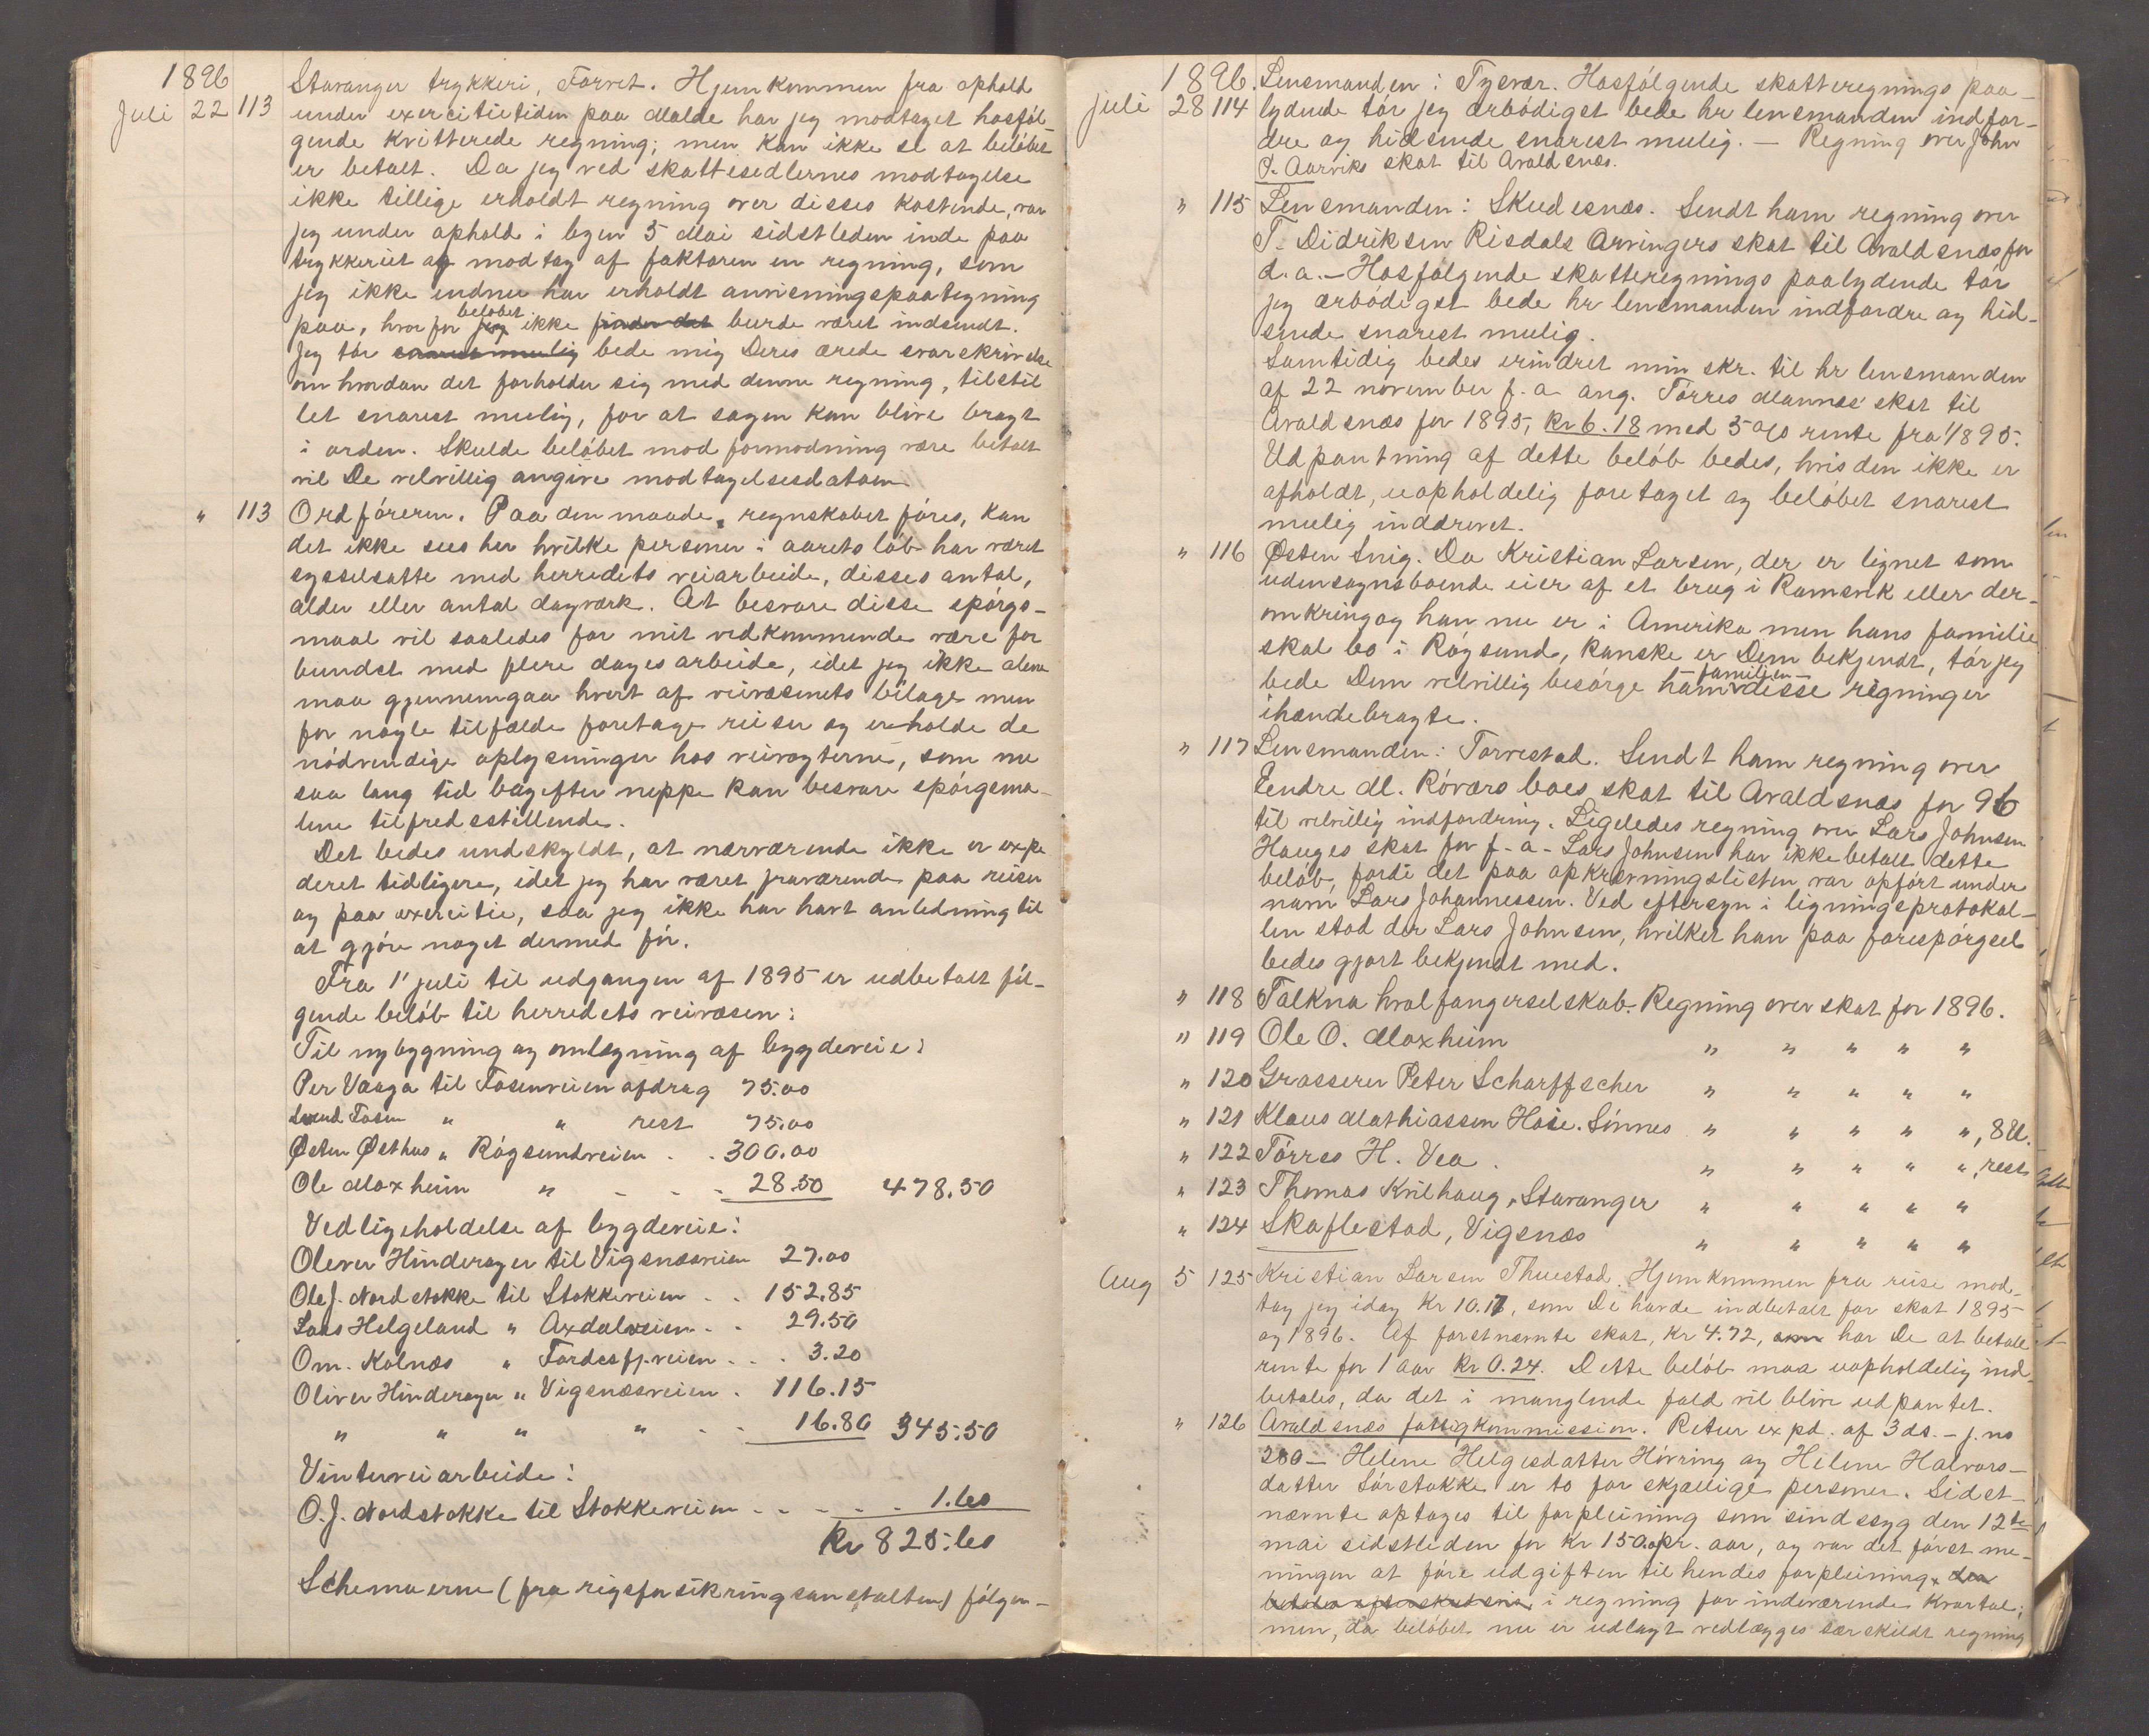 1896
Stavanger trykkeri, Torvet. Hjemkommen fra ophold
Juli 22 113 under exercitietiden paa Malde har jeg modtaget hosföl-
gende kvitterede regning; men kan ikke se at belöbet
er betalt. Da jeg ved skattesedlernes modtagelse
ikke tillige erholdt regning over disses kostende, var
jeg under ophold i byen 5 Mai sidstleden inde paa
trykkeriet og modtog af faktoren en regning, som
jeg ikke endnu har erholdt anvisningspaategning
paa, hvorfor jeg belöbet ikke finder det burde været indsendt.
Jeg tör snarest mulig bede mig Deres ærede svarskrivelse
om hvordan det forholder sig med denne regning, tilstil
let snarest mulig, for at sagen kan blive bragt
i orden. Skulde belöbet mod formodning være betalt
vil De velvillig angive modtagelsesdatoen.
" 113 Ordföreren. Paa den maade, regnskabet föres, kan
det ikke sees her hvilke personer i aarets löb har været
sysselsatte med herredets veiarbeide, disses antal,
alder eller antal dagværk. At besvare disse spörgs-
maal vil saaledes for mit vedkommende være for
bundet med flere dages arbeide, idet jeg ikke alene
maa gjennemgaa hvert af veivæsenets bilage men
for nogle tilfælde foretage reiser og erholde de
nödvendige oplysninger hos veivogterne, som nu
saa lang tid bagefter neppe kan besvare spörgsma-
lene tilfredsstillende.
Det bedes undskyldt, at nærværende ikke er expe
deret tidligere, idet jeg har været fraværende paa reiser
og paa exercitie, saa jeg ikke har havt anledning til
at gjöre noget dermed för.
Fra 1' juli til udgangen af 1895 er udbetalt föl-
gende belöb til herredets veivæsen:
Til nybygning og omlægning af bygdeveie:
Per Vaaga til Fosenveien afdrag 75.00
Svend Fosen " " rest 75.00
Østen Østhus " Rögsundveien . . 300.00
Ole Moxheim " - - - 28.50 478.50
Vedligeholdelse af bygdeveie:
Oliver Hinderager til Vigsnæsveien 27.00
Ole J. Nordstokke til Stokkeveien . . 152.85
Lars Helgeland " Axdalveien . . 29.50
Om. Kolnæs " Fördesfj.veien . . . 3.20
Oliver Hinderager " Vigsnæsveien . 116.15
" " " " . . 16.80 345.50
Vinterveiarbeide:
O.J. Nordstokke til Stokkeveien . . . . . 1.60
Kr 825.60
Schemaerne (fra rigsforsikringsanstalten) fölger-
1896. Lensmanden i Tysvær. Hosfölgende skatteregnings paa-
juli 28 114 lydende tör jeg ærbödigst bede hr lensmanden indfor-
dre og hidsende snarest mulig. — Regning over John
P. Aarviks skat til Avaldsnæs.
" 115 Lensmanden i Skudesnæs. Sendt ham regning over
T. Didriksen Risdals Arvingers skat til Avaldsnæs for
d.a. — Hosfölgende skatteregnings paalydende tör
jeg ærbödigst bede hr lensmanden indfordre og hid-
sende snarest mulig.
Samtidig bedes erindret min skr. til hr lensmanden
af 22 november f.a. ang. Törres Mannes' skat til
Avaldsnæs for 1895, kr 6.18 med 5 o/o rente fra 1/8 95.
Udpantning af dette belöb bedes, hvis den ikke er
afholdt, uopholdelig foretaget og belöbet snarest
mulig inddrevet.
" 116 Østen Snig. Da Kristian Larsen, der er lignet som
udensognsboende eier af et brug i Ramsvik eller der-
omkring og han nu er i Amerika men hans familie
skal bo i Rögsund, kanske er Dem bekjendt, tör jeg
bede Dem velvillig besörge ham - familien - disse regninger
ihændebragte.
" 117 Lensmanden i Torvestad. Sendt ham regning over
Endre M. Röværs boes skat til Avaldsnæs for 96
til velvillig indfordring. Ligeledes regning over Lars Johnsen
Hauges skat for f.a. Lars Johnsen har ikke betalt dette
belöb, fordi det paa opkrævningslisten var opfört under
navn Lars Johannessen. Ved eftersyn i ligningsprotokol-
len stod der Lars Johnsen, hvilket han paa forespörgsel
bedes gjort bekjendt med.
" 118 Talkna hvalfangerselskab. Regning over skat for 1896.
" 119 Ole O. Moxheim " " " " "
" 120 Grosserer Peter Scharffscher " " " " "
" 121 Klaus Mathiassen Hoie. Sönnes " " " " ", 8 U.
" 122 Törres H. Vea . " " " " ", rest
" 123 Thomas Kvilhaug, Stavanger " " " " "
" 124 Skaflestad, Vigsnæs " " " " "
Aug 5 125 Kristian Larsen Thuestad. Hjemkommen fra reise mod-
tog jeg idag Kr 10.17, som De havde indbetalt for skat 1895
og 1896. Af förstnævnte skat, kr 4.72, har De at betale
rente for 1 aar kr 0.24. Dette belöb maa uopholdelig ind-
betales, da det i manglende fald vil blive udpantet.
" 126 Avaldsnæs fattigkommission. Retur expd. af 3 ds. - j.no
280 — Helene Helgesdatter Hövring og Helene Halvors-
datter Sörstokke er to forskjellige personer. Sidst-
nævnte optoges til forpleining som sindssyg den 12te
mai sidstleden for kr 150.00 pr. aar, og var det först me-
ningen at före udgiften til hendes forpleining,
i regning for indeværende kvartal;
men, da belöbet nu er udlagt vedlægges særskildt regning